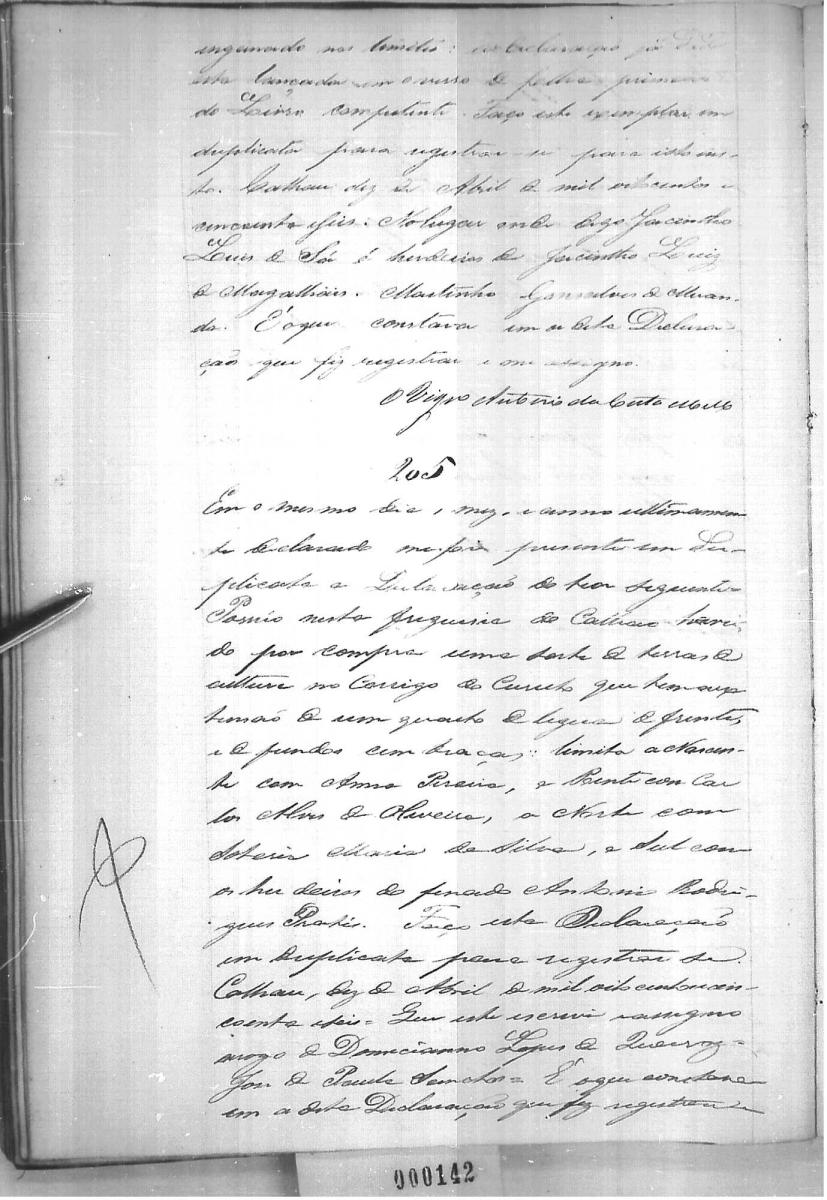 enganado nos limites: da Declaração já
esta lançada em o verso de folha primeira
do Livro competente. Faço este exemplar em
duplicata para registrar-se para isto
to. Calhau dez de Abril de mil oitocentos e
cincoenta eseis. No lugar onde digo Jacintho
Luis de Sá é herdeiros de Jacintho Luiz
de Magalhais. Martinho Gonsalves de Miran-
da. É oque constava em a dita Declara-
ção que fiz registrar e me assigno.
O Vigro Antonio da Costa Mello
205
Em o mesmo dia, mez, e anno ultimamen
te declarado me foi presente em Du-
plicata a Declaração do teor seguinte=
Possúo nesta freguesia do Calhau havi-
do por compra uma sorte de terras de
cultura no Corrigo do Curuto que tem
tensão de um quarto de legua de frente,
e de fundos cem braças: limita a Nascen-
te com Anna Pereira, e Poente com Car
los Alves de Oliveira, a Norte com
Soteria Maria da Silva, e Sul com
os herdeiros do finado Antonio Rodri-
gues Prates. Faço esta Declaração
em duplicata para registrar se.
Calhau, dez de Abril de mil oitocentos ecin-
coenta eseis= Que este escrevi e assigno
arogo de Domecianno Lopes de Queiroz=
José de Paula Santos= É oque constava
em a dita Declaração que fiz registrar e
000142